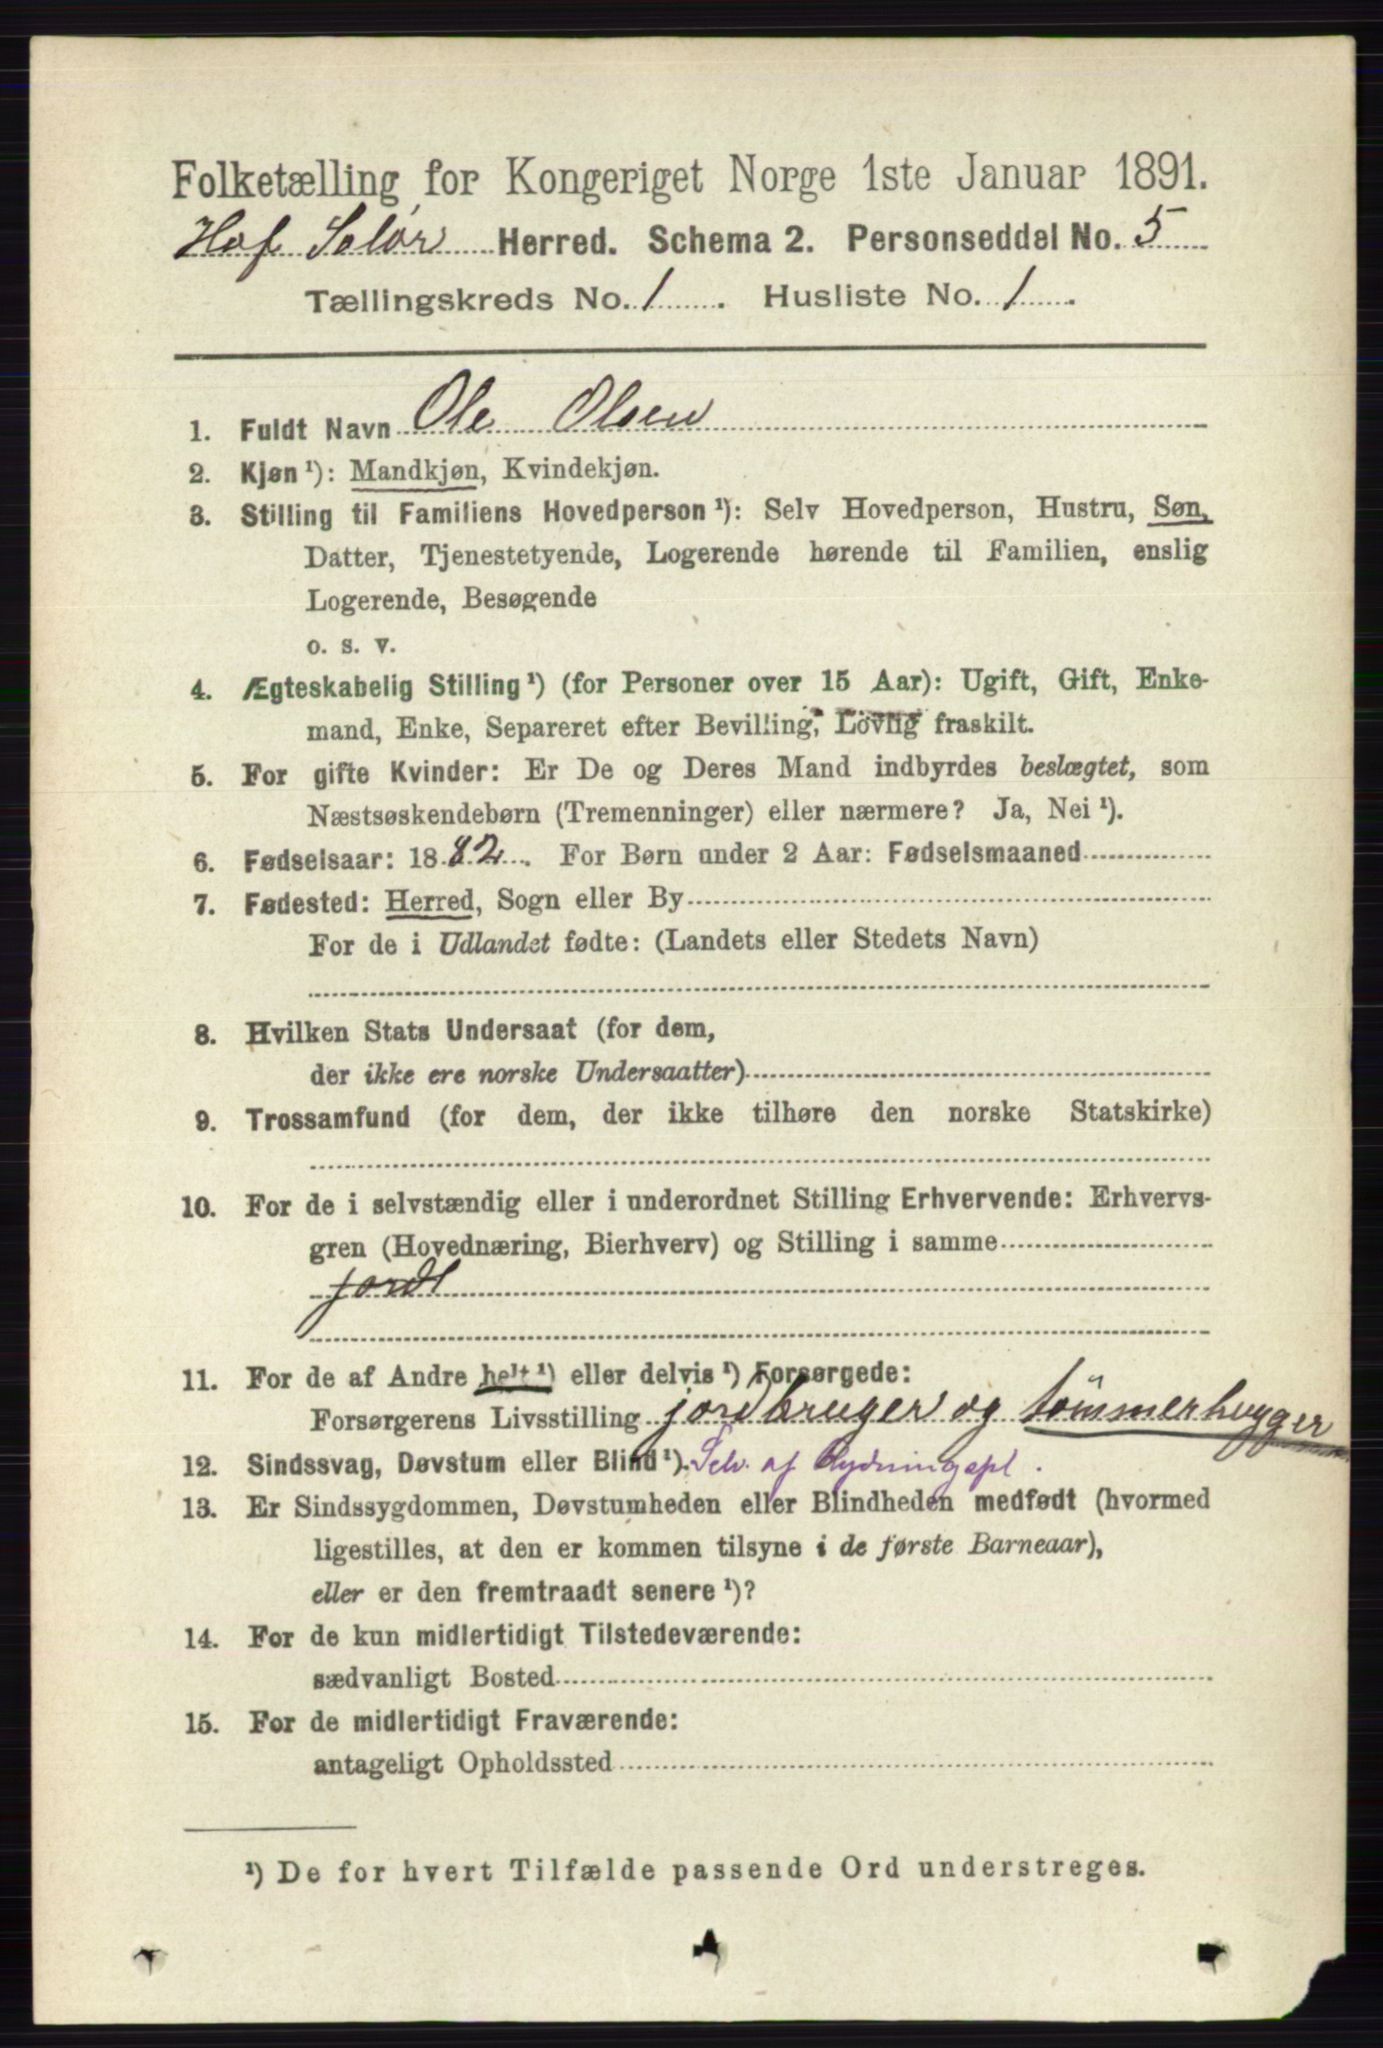 Folketælling for Kongeriget Norge 1ste Januar 1891.
Hof Solør Herred. Schema 2. Personseddel No. 5
Tællingskreds No. 1. Husliste No. 1.
1. Fuldt Navn Ole Olsen
2. Kjøn ¹): Mandkjøn, Kvindekjøn.
3. Stilling til Familiens Hovedperson ¹): Selv Hovedperson, Hustru, Søn,
Datter, Tjenestetyende, Logerende hørende til Familien, enslig
Logerende, Besøgende
o. s. v.
4. Ægteskabelig Stilling ¹) (for Personer over 15 Aar): Ugift, Gift, Enke-
mand, Enke, Separeret efter Bevilling, Lovlig fraskilt.
5. For gifte Kvinder: Er De og Deres Mand indbyrdes beslægtet, som
Næstsøskendebørn (Tremenninger) eller nærmere? Ja, Nei ¹).
6. Fødselsaar: 1882. For Børn under 2 Aar: Fødselsmaaned
7. Fødested: Herred, Sogn eller By
For de i Udlandet fødte: (Landets eller Stedets Navn)
8. Hvilken Stats Undersaat (for dem,
der ikke ere norske Undersaatter)
9. Trossamfund (for dem, der ikke tilhøre den norske Statskirke)
10. For de i selvstændig eller i underordnet Stilling Erhvervende: Erhvervs-
gren (Hovednæring, Bierhverv) og Stilling i samme
11. For de af Andre helt ¹) eller delvis ¹) Forsørgede:
Forsørgerens Livsstilling jordbruger og tömmerhugger
12. Sindssvag, Døvstum eller Blind ¹). Selv. af Rydningspl.
13. Er Sindssygdommen, Døvstumheden eller Blindheden medfødt (hvormed
ligestilles, at den er kommen tilsyne i de første Barneaar),
eller er den fremtraadt senere ¹)?
14. For de kun midlertidigt Tilstedeværende:
sædvanligt Bosted
15. For de midlertidigt Fraværende:
antageligt Opholdssted
¹) De for hvert Tilfælde passende Ord understreges.